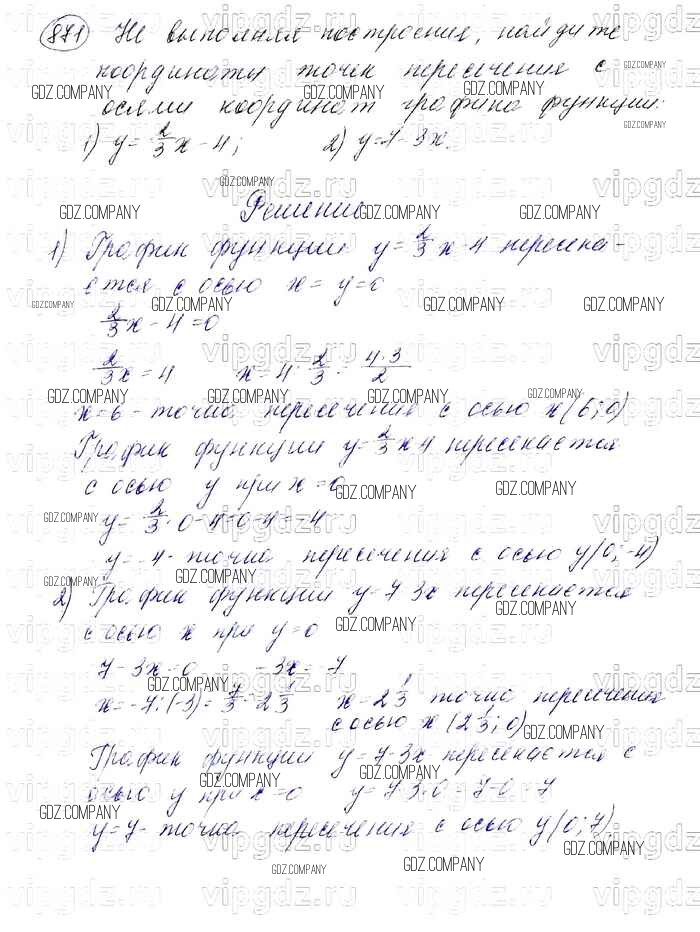 871 Не выполняя построения, найдите
координаты точек пересечения с
осями координат графика функции:
1) y = 2/3 x - 4; 2) y = 7 - 3x.
Решение
1) График функции y = 2/3 x - 4 пересека-
ется с осью x = y = 0
2/3 x - 4 = 0
2/3 x = 4 x = 4 : 2/3 = 4·3/2
x = 6 - точка пересечения с осью x (6; 0)
График функции y = 2/3 x - 4 пересекается
с осью y при x = 0
y = 2/3 · 0 - 4 = 0 - 4 = -4
y = -4 - точка пересечения с осью y (0; -4)
2) График функции y = 7 - 3x пересекается
с осью x при y = 0
7 - 3x = 0 -3x = -7
x = -7 : (-3) = 7/3 = 2 1/3 x = 2 1/3 точка пересечения
с осью x (2 1/3; 0)
График функции y = 7 - 3x пересекается с
осью y при x = 0 y = 7 - 3·0 = 7 - 0 = 7
y = 7 - точка пересечения с осью y (0; 7).
GDZ.COMPANY
vipgdz.ru